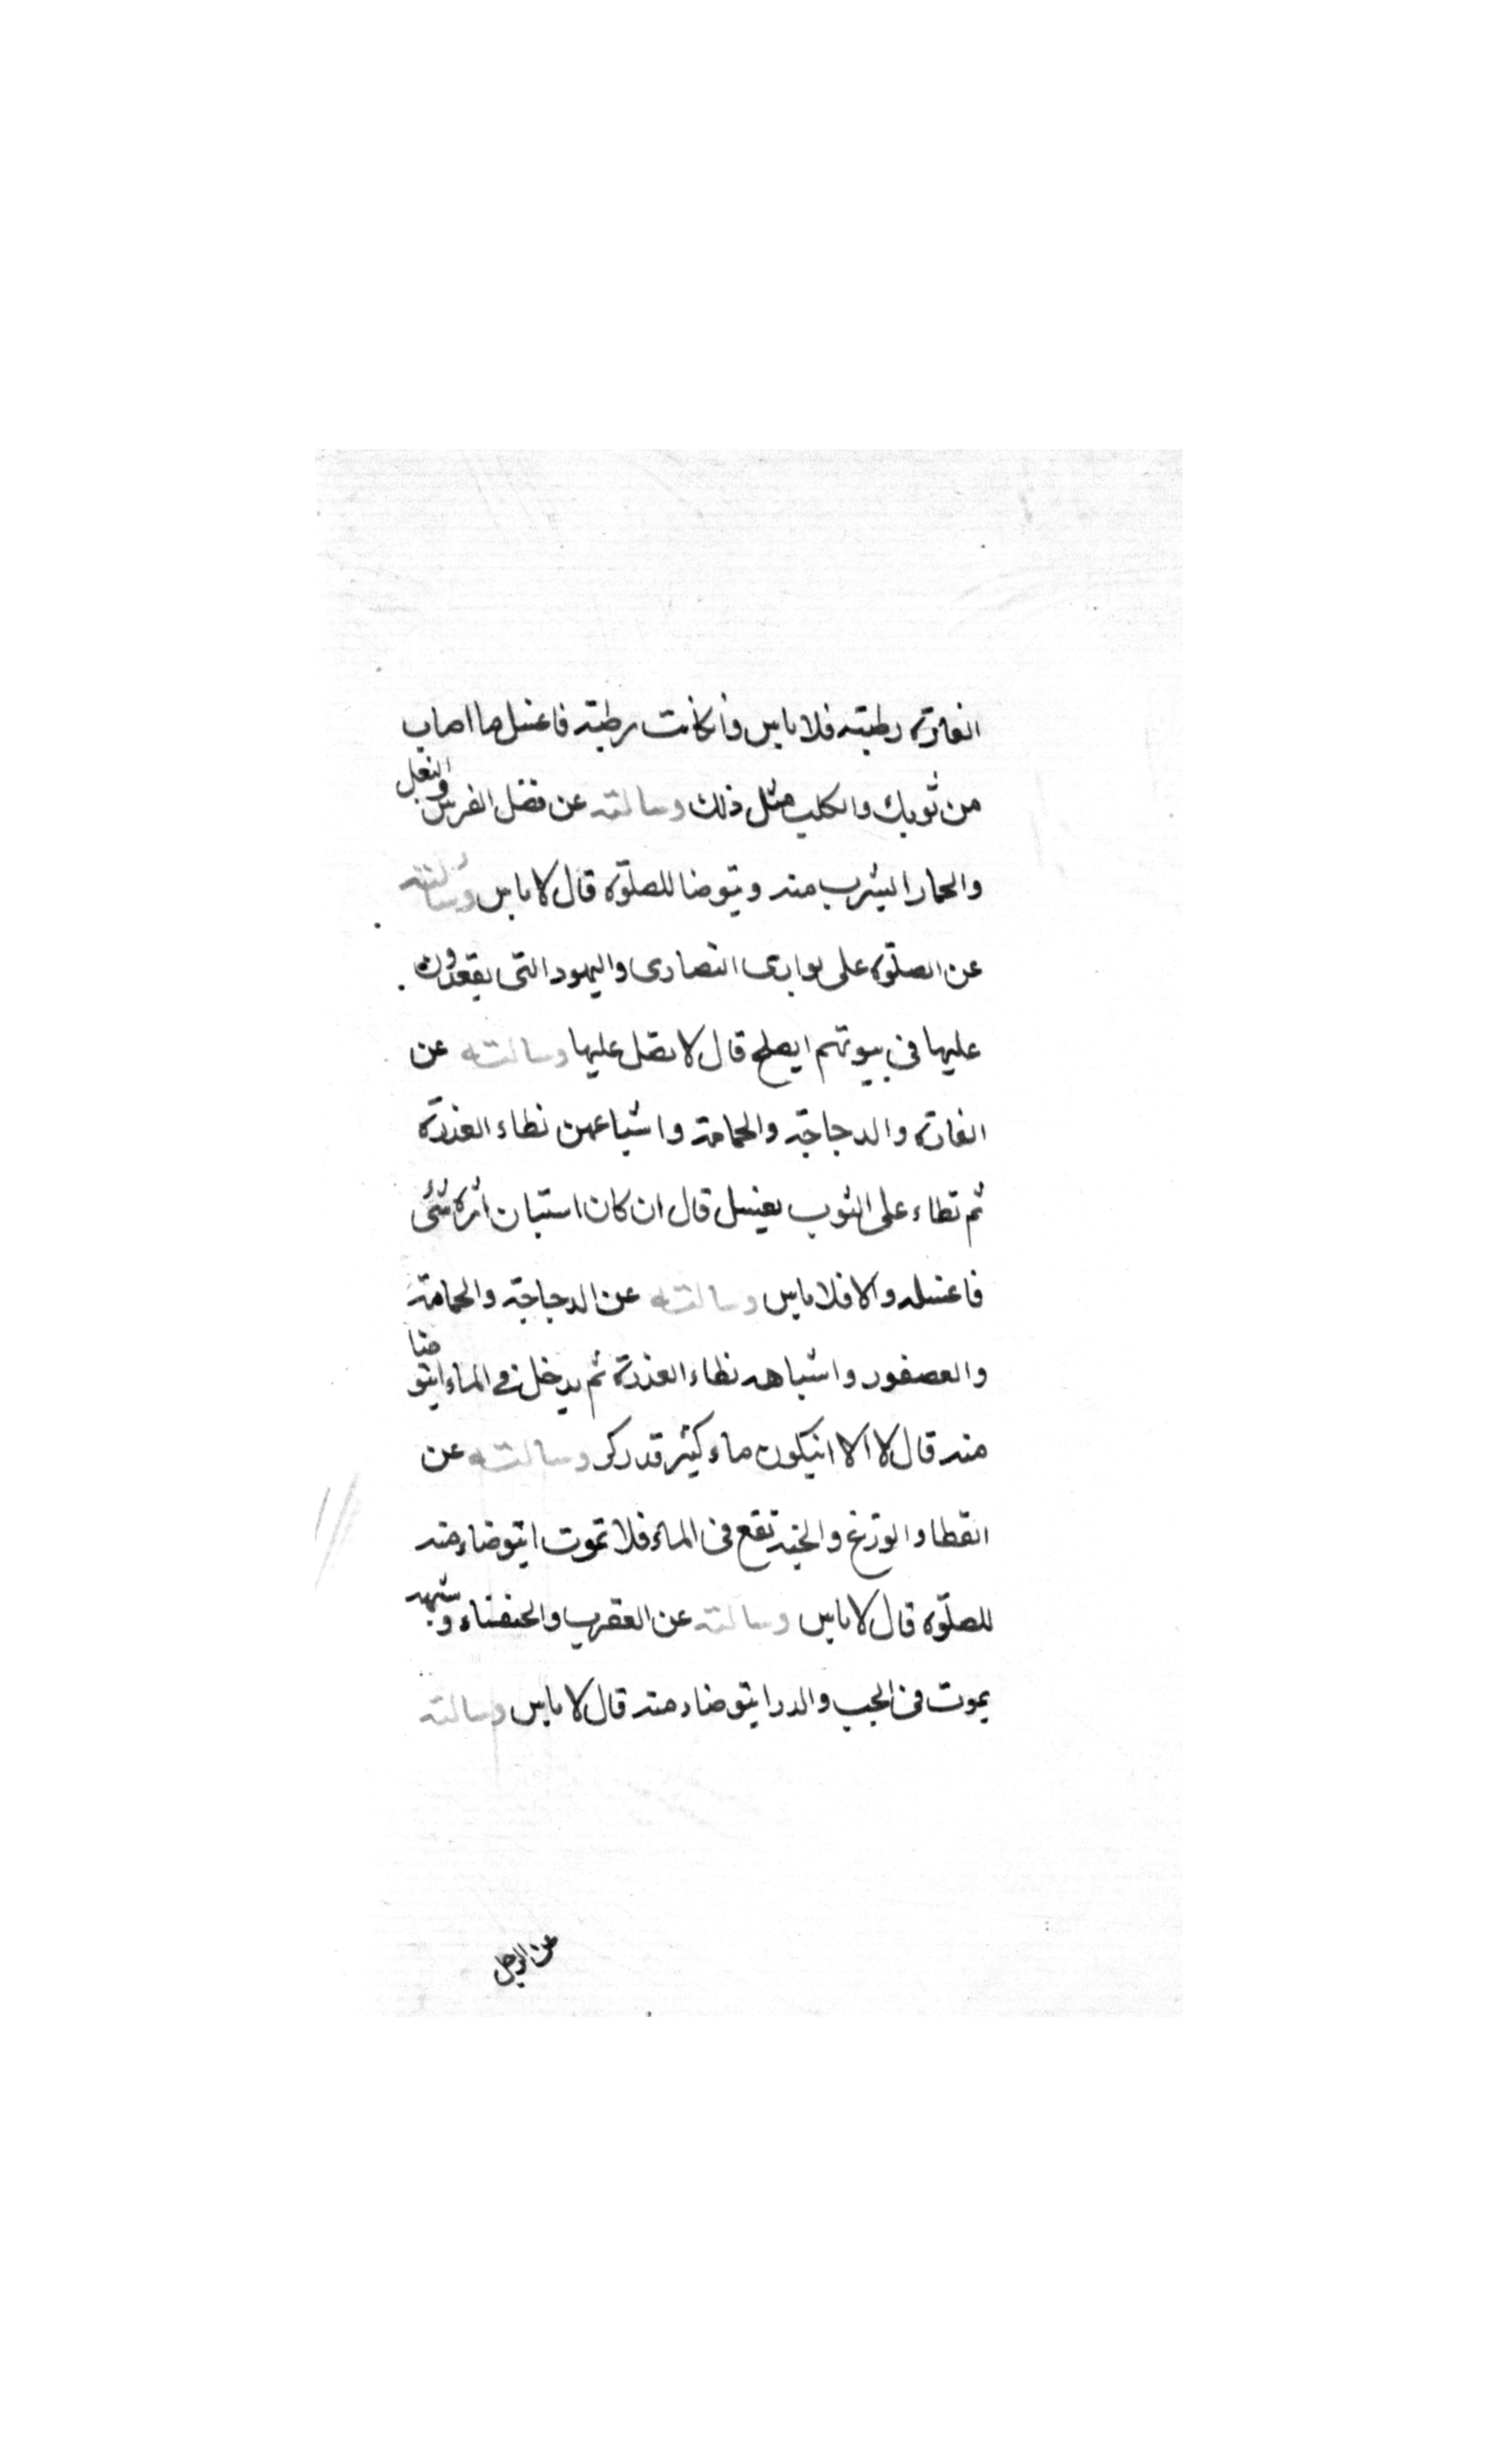 الفارة رطبته فلا باس وانكانت رطبته فاغسل ما اصاب
من ثوبك والكلب مثل ذلك وسالته عن فضل الفرس والبغل
والحمار ايشرب منه ويتوضا للصلوة قال لا باس وسالته
عن الصلوة على بوارى النصارى واليهود التى يقعدون
عليها فى بيوتهم ايصلح قال لا تصل عليها وسالته عن
الفارة والدجاجة والحمامة واشباعهن تطاء العذرة
ثم تطاء على الثوب يغسل قال ان كان استبان اثره شئى
فاغسله والا فلا باس وسالته عن الدجاجة والحمامة
والعصفور واشباهه تطاء العذرة ثم يدخل فى الماء ايتوضا
منه قال لا الا انيكون ماء كثير قدر كر وسالته عن
القطا والوزغ والحية تقع فى الماء فلا تموت ايتوضاء منه
للصلوة قال لا باس وسالته عن العقرب والخنفساء وشبهه
يموت فى الجب والدر ايتوضاء منه قال لا باس وسالته
عن الرجل